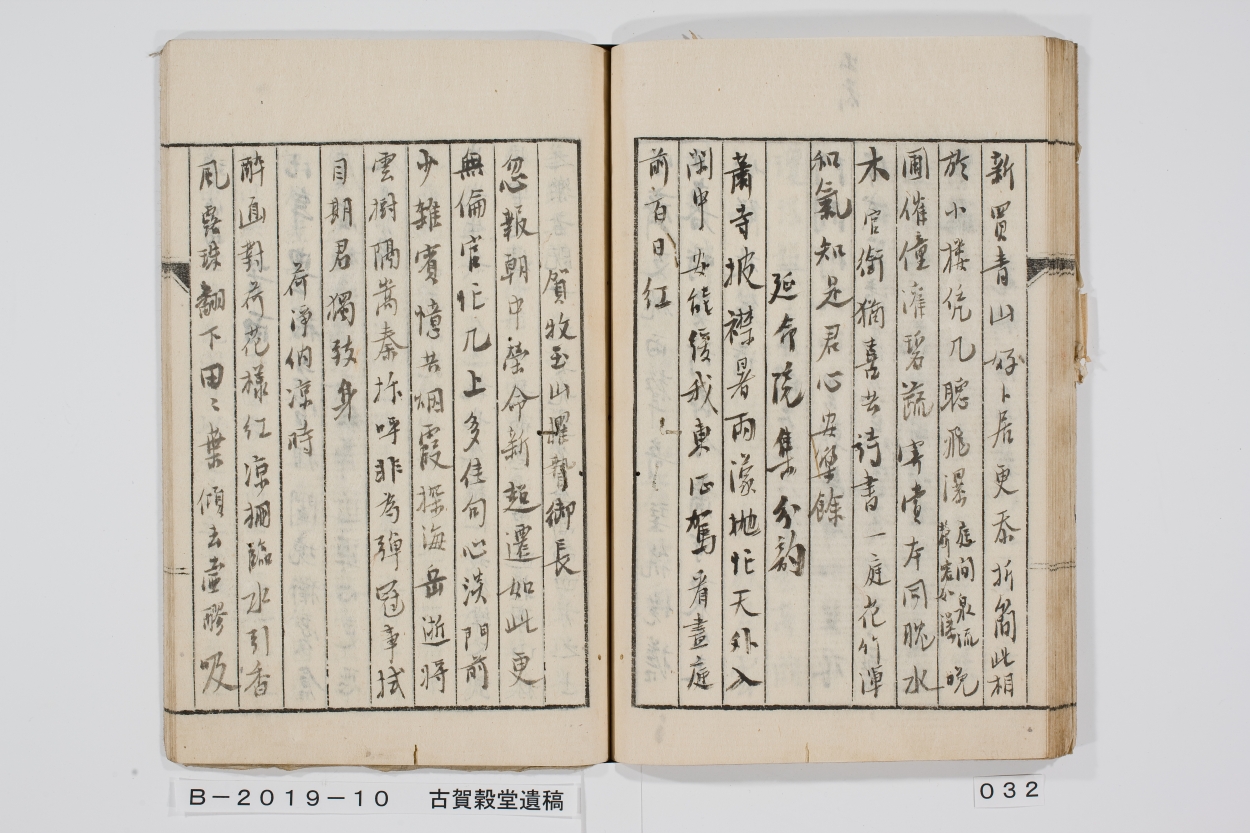 新買青山好卜居更忝折簡此相
於小樓凭几聽飛瀑庭間泉流声宛如瀑晩
圃催僮灌碧蔬宦賞本同魄水
木官銜猶喜共詩書一庭花竹渾
和氣知是君心安樂餘
延命院集分韵
蕭寺披襟暑雨濛抛忙天外入
閑中安能緩我東征駕看盡庭
前百日紅
賀牧玉山擢贄御長
忽報朝中榮命新超遷如此更
無倫官忙几上多佳句心淡門前
少雜賓憶共烟霞探海岳逝將
雲樹隔嵩秦
非為彈冠事拭
目期君獨致身
荷淨納涼時
醉面對荷花樣紅涼棚臨水引香
風露珠翻下田〻葉傾去壷醪吸
B－2019－10　古賀穀堂遺稿
032